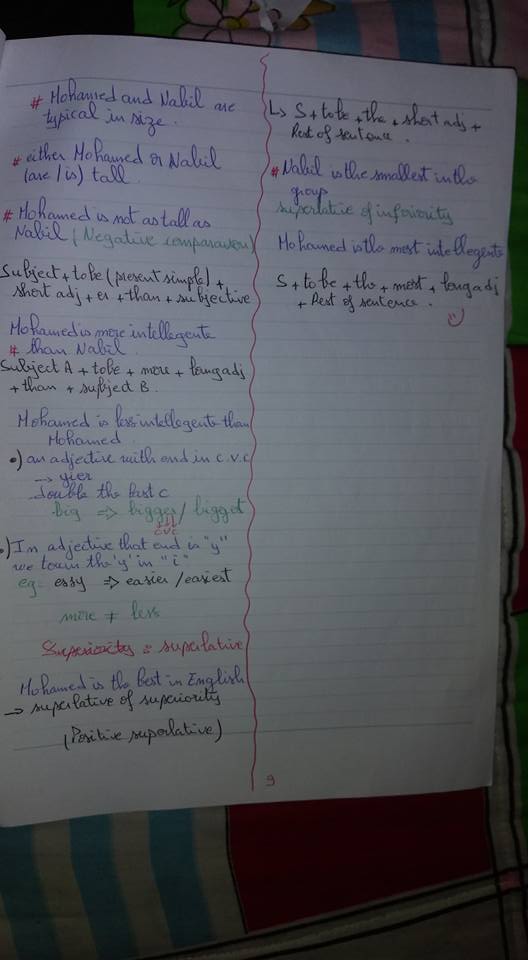 # Mohamed and Nabil are
typical in size.
# either Mohamed or Nabil
(are / is) tall
# Mohamed is not as tall as
Nabil (Negative comparaison)
Subject + to be (present simple) +
short adj + er + than + subjective
Mohamed is more intellegente
# than Nabil.
Subject A + to be + more + long adj
+ than + subject B.
Mohamed is less intellegente than
Mohamed
•) an adjective with end in c.v.c
→ yier
double the last c
big ⇒ bigger / bigget
cvc
•) In adjective that end is "y"
we the "y" in "i"
eg = essy ⇒ easier / easiest
more ≠ less
Superiority : superlative
Mohamed is the best in English
→ superlative of superiority
(Positive superlative)
L> S + to be + the + short adj +
Rest of sentence.
# Nabil is the smallest in the
group
superlative of inferiority
Mohamed is the most intellegente
S + to be + the + most + long adj
+ Rest of sentence.
9